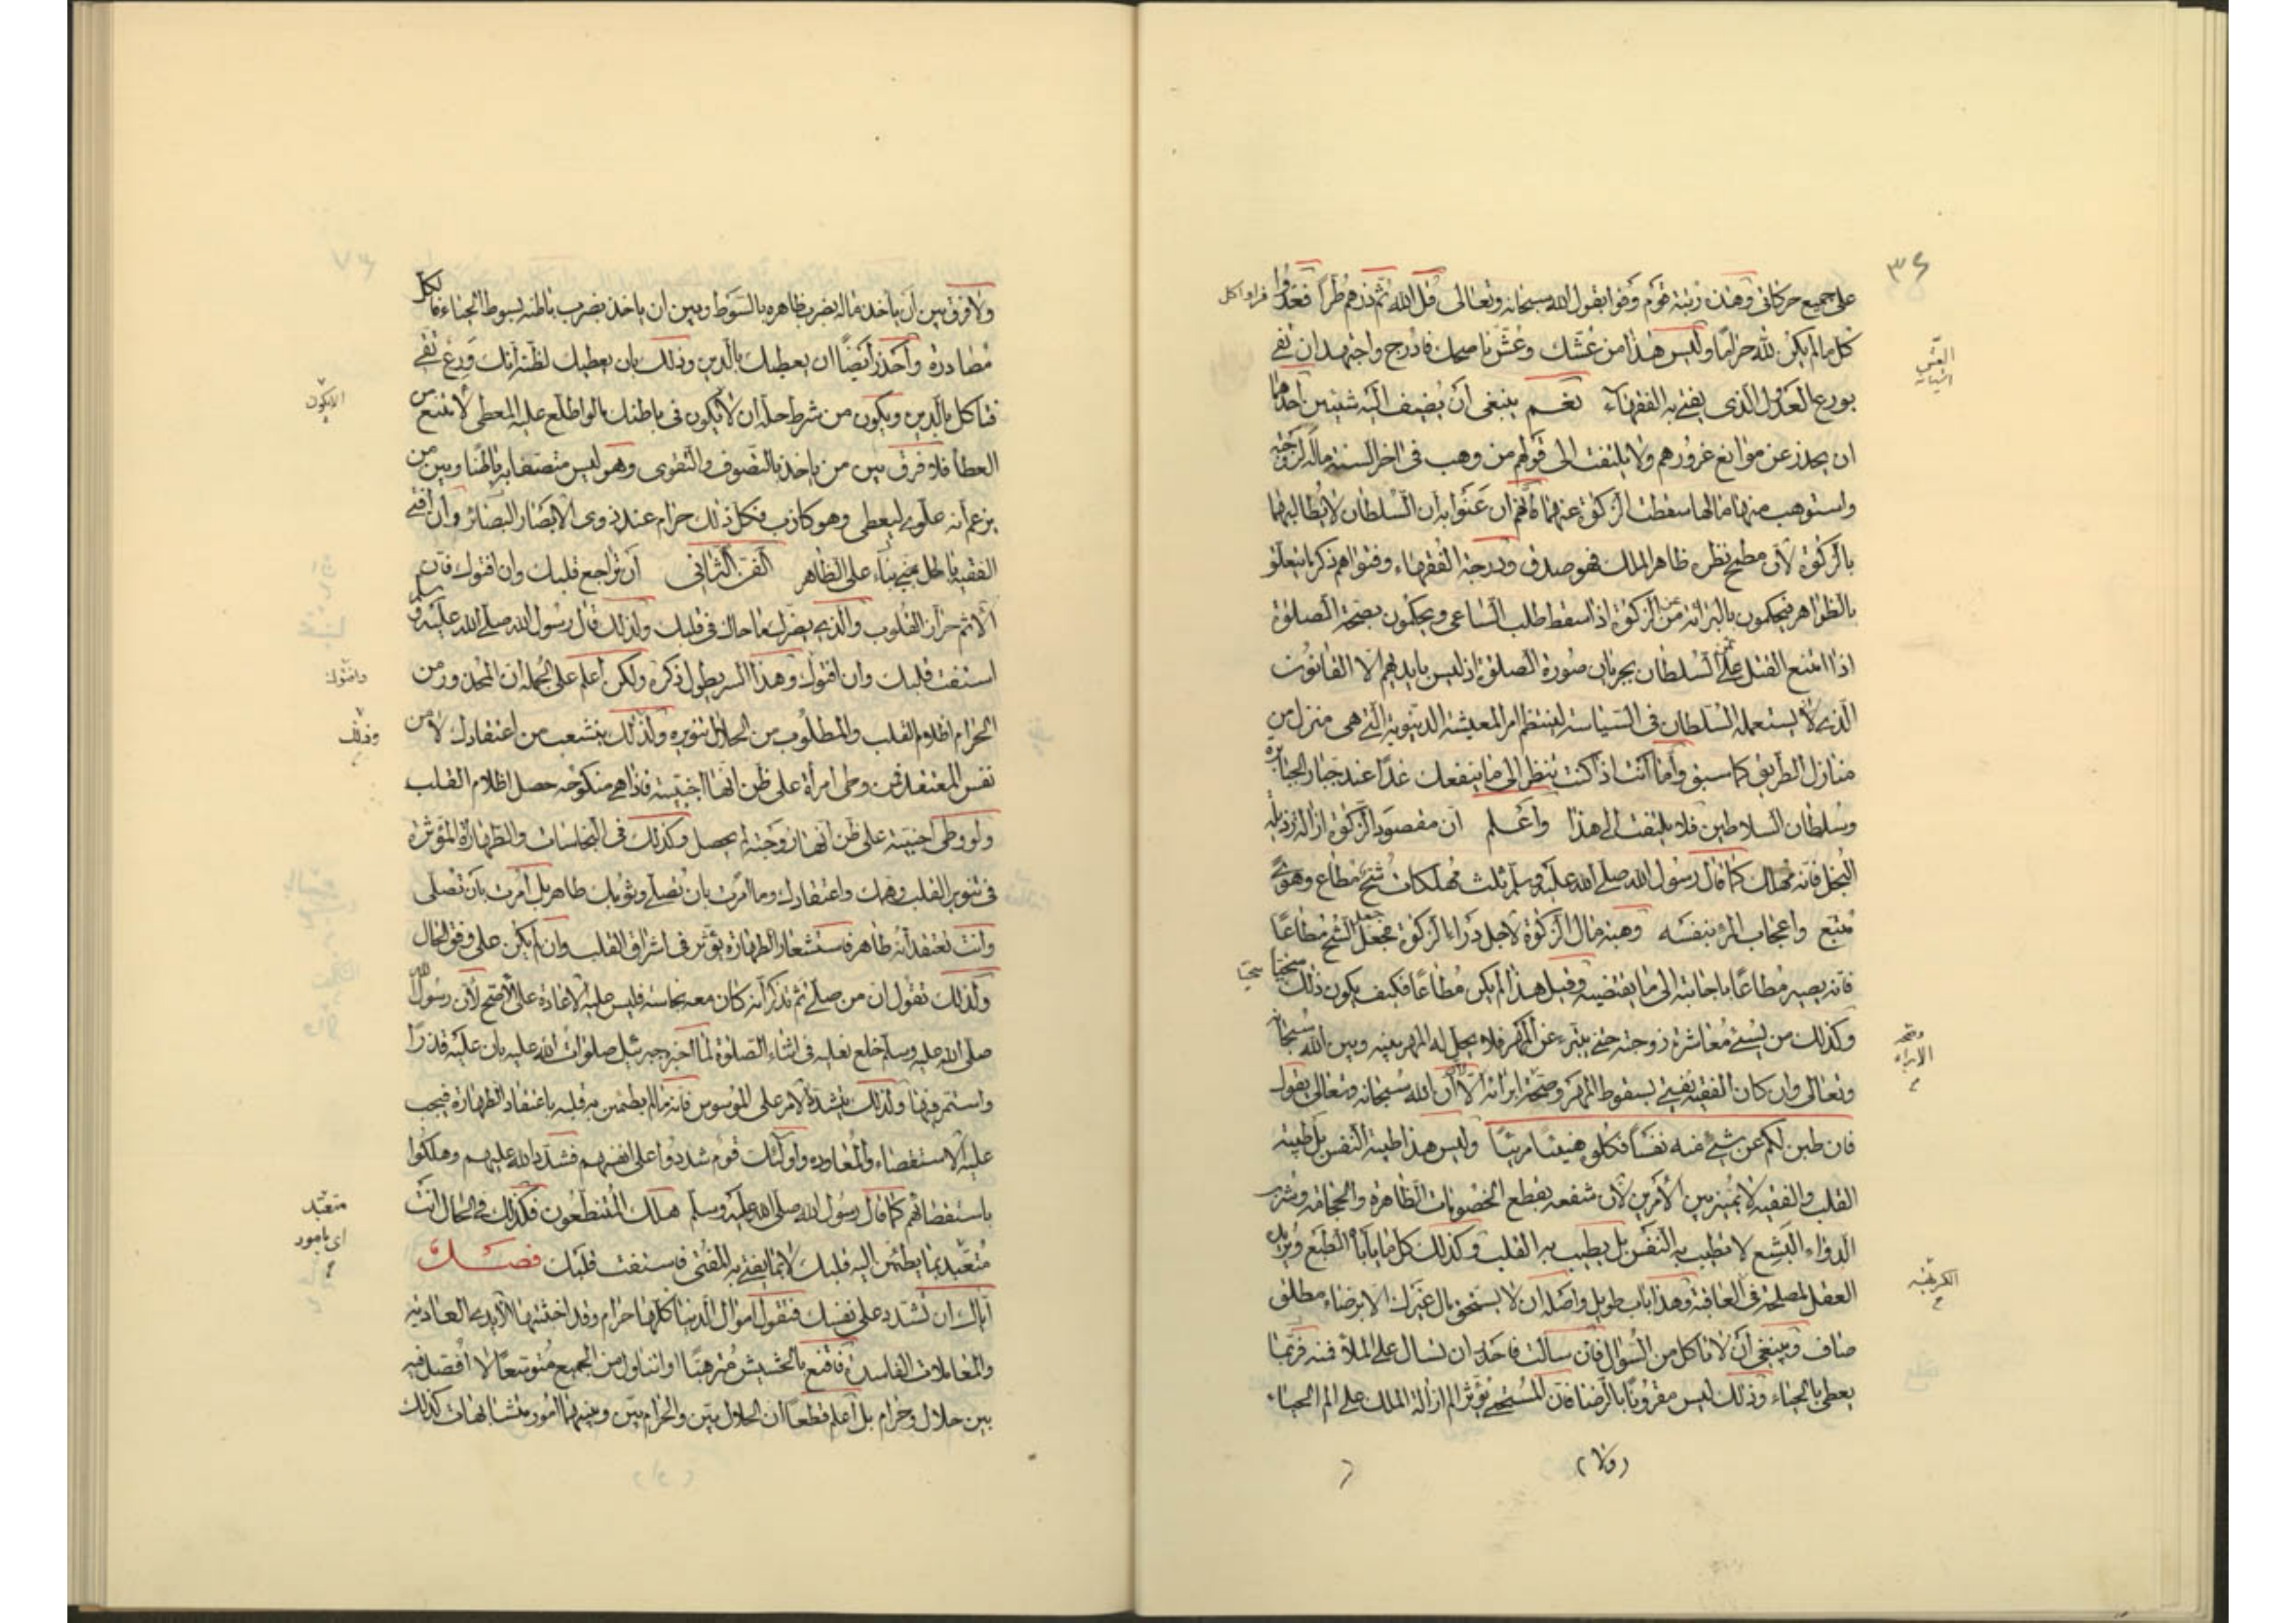 ٣٤
على جميع حركاتى وهذه رتبة قوم وفوا بقول الله سبحانه وتعالى قل الله ثم ذرهم طراً فعدوا
كل مالم يكن لله حراما وليس هذا من عشك وعش ناصحك فادرج واجتهد ان تفى
بورع العدول الذى يفتى به الفقهاء نعم ينبغى أن يضيف اليه شيئين أحدهما
ان يحذر عن مواقع غرورهم ولا يلتفت الى قولهم من وهب فى اخر السنة ماله لزوجته
واستوهب منها مالها سقطت الزكوة عنهما فانهم ان عنوا به ان السلطان لا يطالبهما
بالزكوة لأن مطمح نظره ظاهر الملك فهو صدق ودرجة الفقهاء وفتواهم ذكر ما يتعلق
بالظواهر فيحكمون بالبرائة من الزكوة اذا سقط طلب الساعى ويحكمون بصحة الصلوة
اذا امتنع القتل على السلطان بجريان صورة الصلوة اذ ليس بايديهم الا القانون
الذى لا يستعمله السلطان فى السياسة لينتظم امر المعيشة الدنيوية التى هى منزل من
منازل الطريق كما سبق وأما أنت اذا كنت تنظر الى ما ينفعك غدا عند جبار الجبابرة
وسلطان السلاطين فلا يلتفت الى هذا واعلم ان مقصود الزكوة ازالة رذيلة
البخل فانه مهلك كما قال رسول الله صلى الله عليه وسلم ثلث مهلكات شح مطاع وهوى
متبع واعجاب المرء بنفسه وهبة مال الزكوة لاجل درء الزكوة مجعل الشح مطاعاً
فانه يصير مطاعًا باجابته الى ما يقتضيه وقبل هذا لم يكن مطاعًا فكيف يكون ذلك منجيا
وكذلك من يسئ معاشرة زوجته حتى يتبرء عن المهر فلا يحل له المهر بينه وبين الله سبحانه
وتعالى وان كان الفقيه يفتى بسقوط المهر وصحة ابرائه الا أن الله سبحانه وتعالى يقول
فان طبن لكم عن شئ منه نفساً فكلوه هنيئًا مريئًا وليس هذا طيبة النفس بل طيبة
القلب والفقيه لا يميز بين الأمرين لأن شغفه بقطع الخصومات الظاهرة والحجامة وشرب
الدواء البشع لا تطيب به النفس بل يطيب به القلب وكذلك كل ما يأباه الطبع ويريد
العقل لمصلحة فى العاقبة وهذا باب طويل واصله ان لا يستحق مال غيرك الا برضاء مطلق
صاف وينبغى أن لا تاكل من السؤال فان سالت فاحذر ان تسال على الملأ فمنه فربما
يعطى بالحياء وذلك ليس مقرونًا بالرضا فان المستحى يؤثر الم ازالة الملك على الم الحياء
وصحة
الابراء
ولا فرق بين أن ياخذ ماله بضرب ظاهره بالسوط وبين ان ياخذ بضرب باطنه بسوط الحياء فالكل
مصادرة وأحذر أيضًا ان يعطيك بالدين وذلك بان يعطيك لظنه أنك ورع تقى
فتاكل بالدين ويكون من شرط حله ان لا يكون فى باطنك ما لو اطلع عليه المعطى لامتنع من
العطاء فلا فرق بين من ياخذ بالتصوف والتقوى وهو ليس متصفا به باطنًا وبين من
يزعم انه علوى ليعطى وهو كاذب فكل ذلك حرام عند ذوى الابصار البصائر وان أفتى
الفقيه بالحل بنى بناء على الظاهر الفن الثانى أن تراجع قلبك وان افتوك فان
الاثم حزاز القلوب والذى يضرك ما حاك فى قلبك ولذلك قال رسول الله صلى الله عليه وسلم
استفت قلبك وان افتوك وهذا السر يطول ذكره ولكن أعلم على الجملة ان المحذور من
الحرام اظلام القلب والمطلوب من الحلال تنويره ولذلك يتشعب من اعتقادك لا من
نفس المعتقد فمن وطى امرأة على ظن انها اجنبية فاذا هى منكوحه حصل اظلام القلب
ولو وطى اجنبية على ظن انها زوجته لم يحصل وكذلك فى النجاسات والطهارة المؤثرة
فى تنوير القلب وهمك واعتقادك وما امرت بان تصلى وثوبك طاهر بل امرت بان تصلى
وانت تعتقد أنه طاهر فاستشعار الطهارة يؤثر فى اشراق القلب وان لم يكن على وفق الحال
ولذلك نقول ان من صلى ثم تذكر أنه كان معه نجاسة فليس عليه الاعادة على الاصح لأن رسول الله
صلى الله عليه وسلم خلع نعليه فى اثناء الصلوة لما اخبره جبرئيل صلوات الله عليه بان عليه قذرًا
واستمر فيها ولذلك يتشدد الامر على الموسوس فانه ما لم يطمئن به قلبه باعتقاد الطهارة فيجب
عليه الاستقصاء والمعاوده واولئك قوم شددوا على انفسهم فشدد الله عليهم وهلكوا
باستقصائهم كما قال رسول الله صلى الله عليه وسلم هلك المتنطعون فكذلك فى الحال انت
متعبد بما يطمئن اليه قلبك لا بما يفتى به المفتى فاستفت قلبك فصل
اياك ان تشدد على نفسك فتقول اموال الدنيا كلها حرام وقد اخذتها الايدى العادية
والمعاملات الفاسدة فاقنع بالحشيش مترهبًا او اتناول من الجميع متوسعًا لا افصل فيه
بين حلال وحرام بل أعلم قطعاً ان الحلال بين والحرام بين وبينهما امور متشابهات كذلك
متعبد
اى مامور